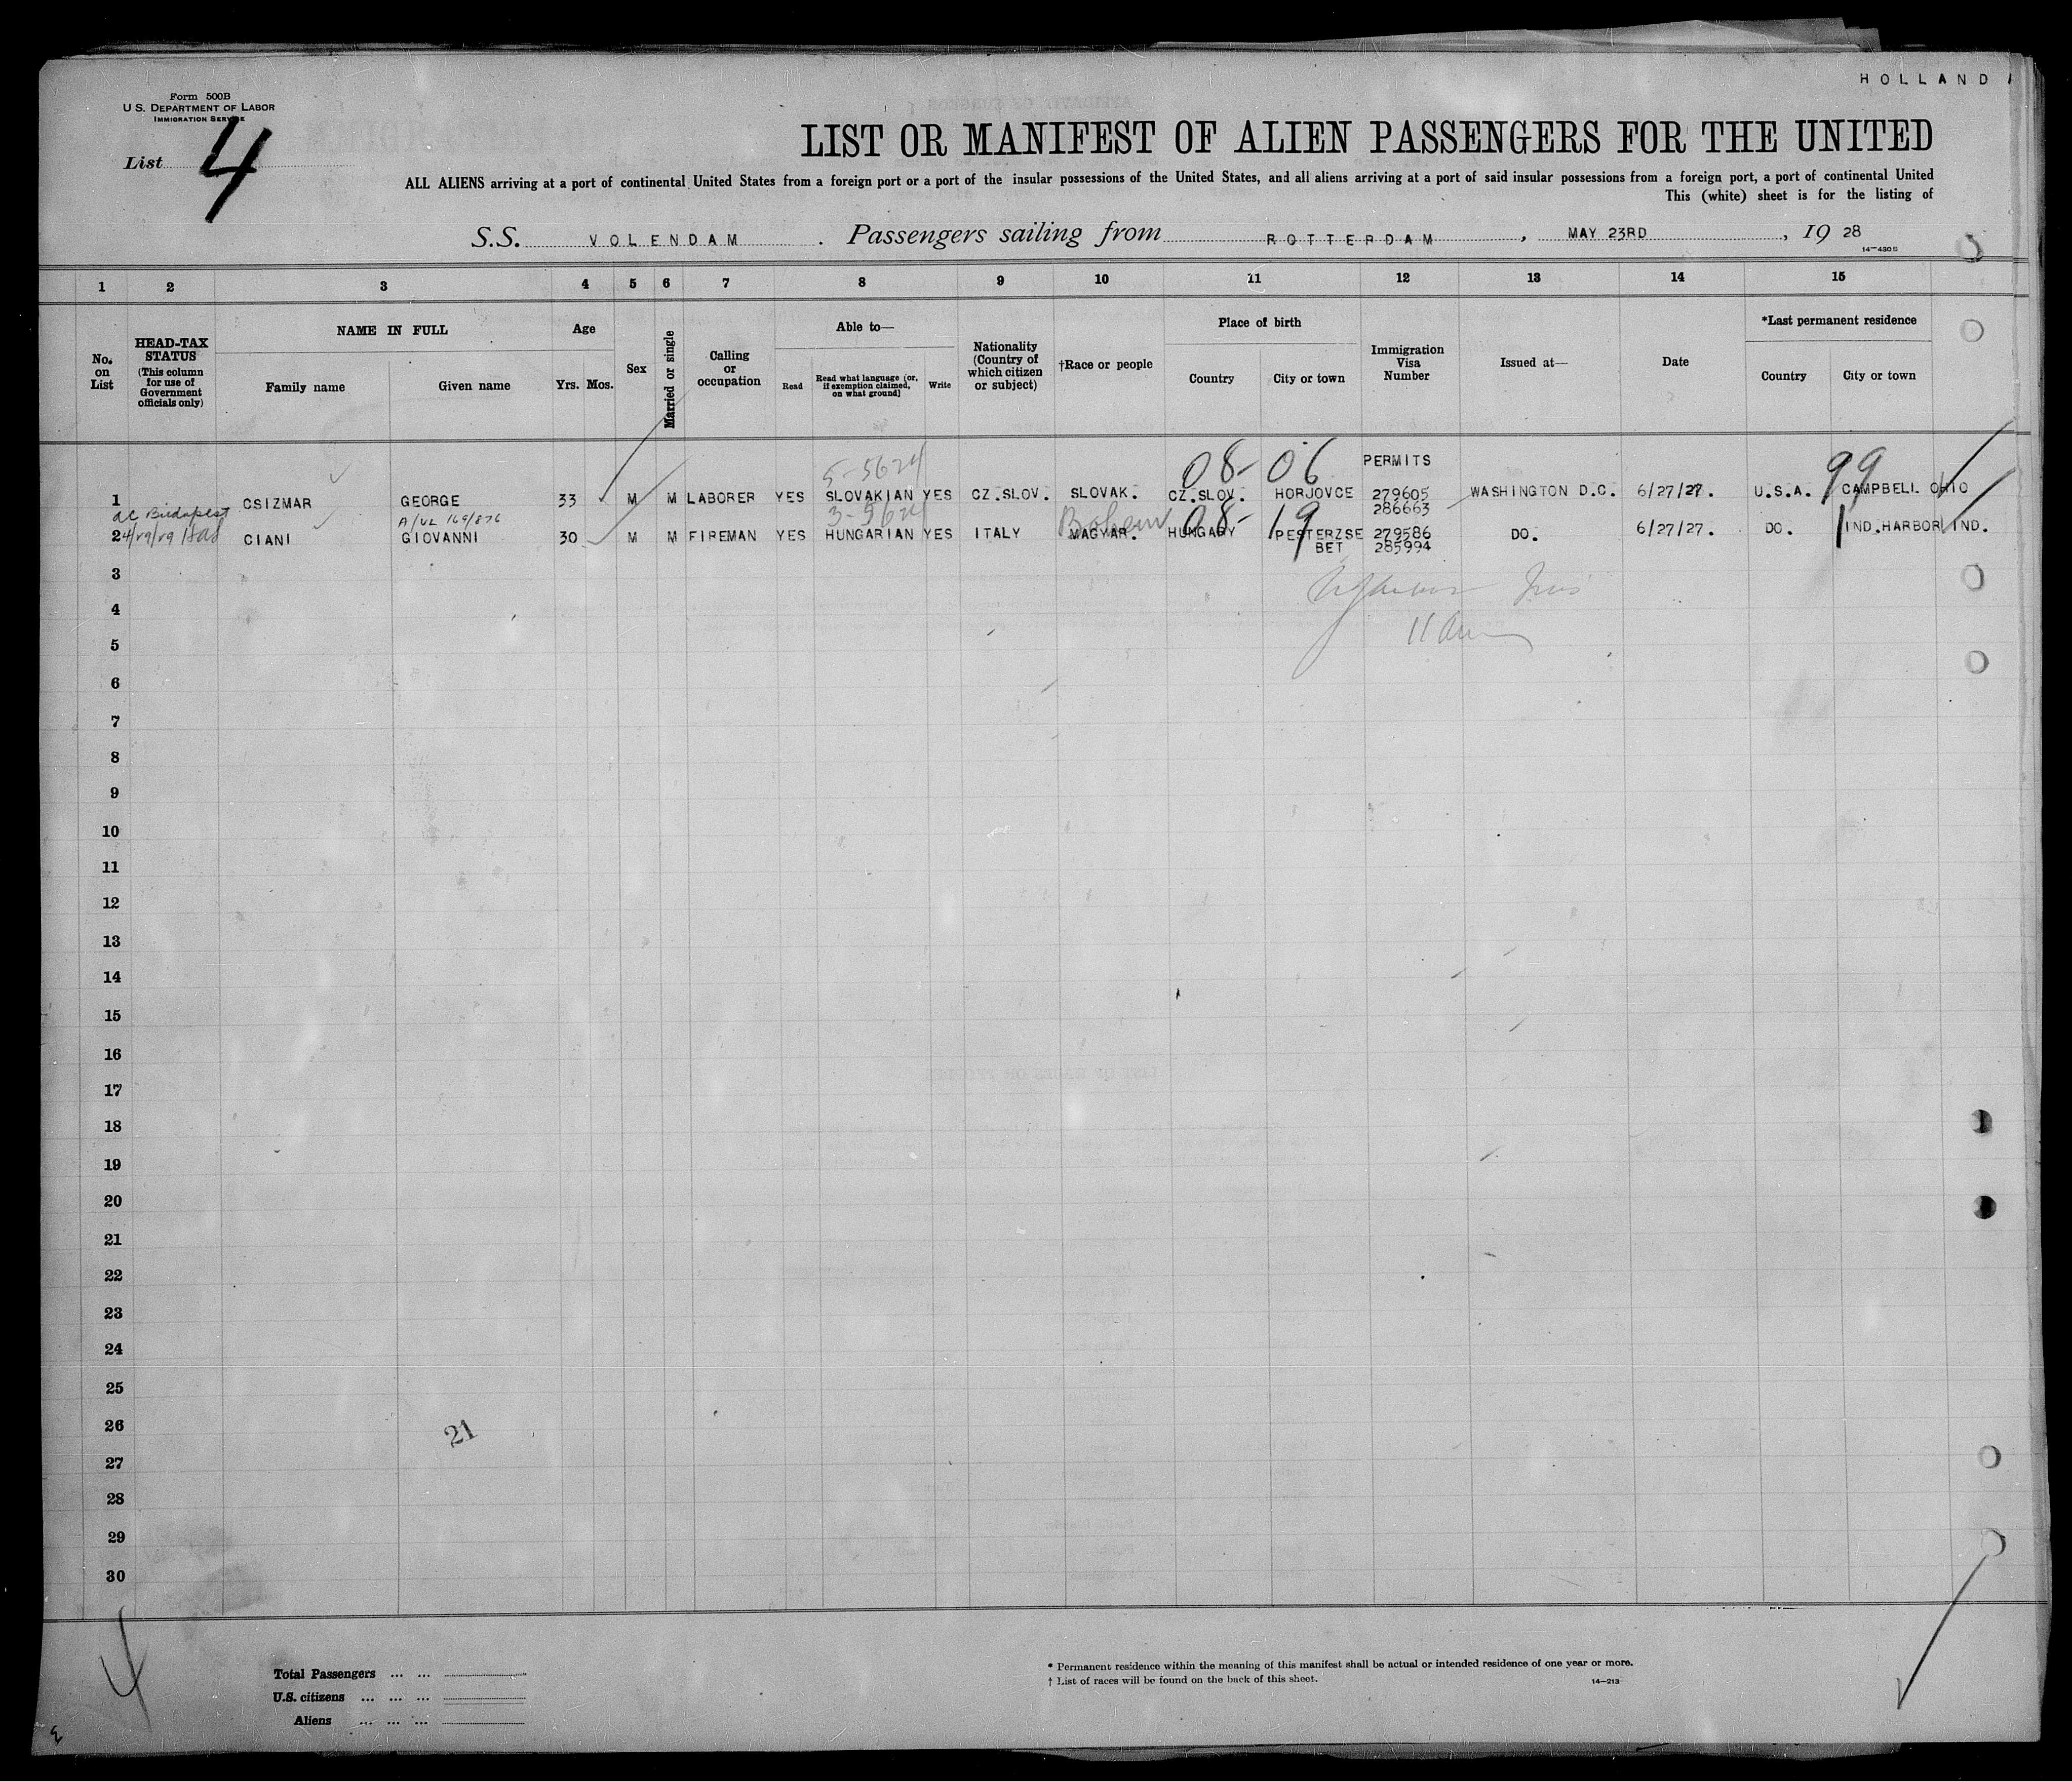 HOLLAND
Form 500B
U. S. DEPARTMENT OF LABOR
IMMIGRATION SERVICE
List 4
LIST OR MANIFEST OF ALIEN PASSENGERS FOR THE UNITED
ALL ALIENS arriving at a port of continental United States from a foreign port or a port of the insular possessions of the United States, and all aliens arriving at a port of said insular possessions from a foreign port, a port of continental United
This (white) sheet is for the listing of
S.S. VOLENDAM . Passengers sailing from ROTTERDAM , MAY 23RD , 19 28
14—430B
1 2 3 4 5 6 7 8 9 10 11 12 13 14 15
No. on List
HEAD-TAX STATUS (This column for use of Government officials only)
NAME IN FULL
Family name
Given name
Age
Yrs. Mos.
Sex
Married or single
Calling or occupation
Able to—
Read
Read what language (or, if exemption claimed, on what ground)
Write
Nationality (Country of which citizen or subject)
†Race or people
Place of birth
Country
City or town
Immigration Visa Number
Issued at—
Date
*Last permanent residence
Country
City or town
5-5624 08- 06 PERMITS 99
1 CSIZMAR GEORGE 33 M M LABORER YES SLOVAKIAN YES CZ.SLOV. SLOVAK. CZ.SLOV. HORJOVCE 279605 WASHINGTON D.C. 6/27/27. U.S.A. CAMPBELL OHIO
286663
Budapest A/VL 169/876 3-5624 08- 19
2 CIANI GIOVANNI 30 M M FIREMAN YES HUNGARIAN YES ITALY MAGYAR. HUNGARY PESTERZSE 279586 DO. 6/27/27. DO. IND.HARBOR IND.
BET 285994
3
4
5
6
7
8
9
10
11
12
13
14
15
16
17
18
19
20
21
22
23
24
25
26
21
27
28
29
30
4
Total Passengers ... ...
U.S. citizens ... ... ...
Aliens ... ... ...
* Permanent residence within the meaning of this manifest shall be actual or intended residence of one year or more.
† List of races will be found on the back of this sheet.
14—213